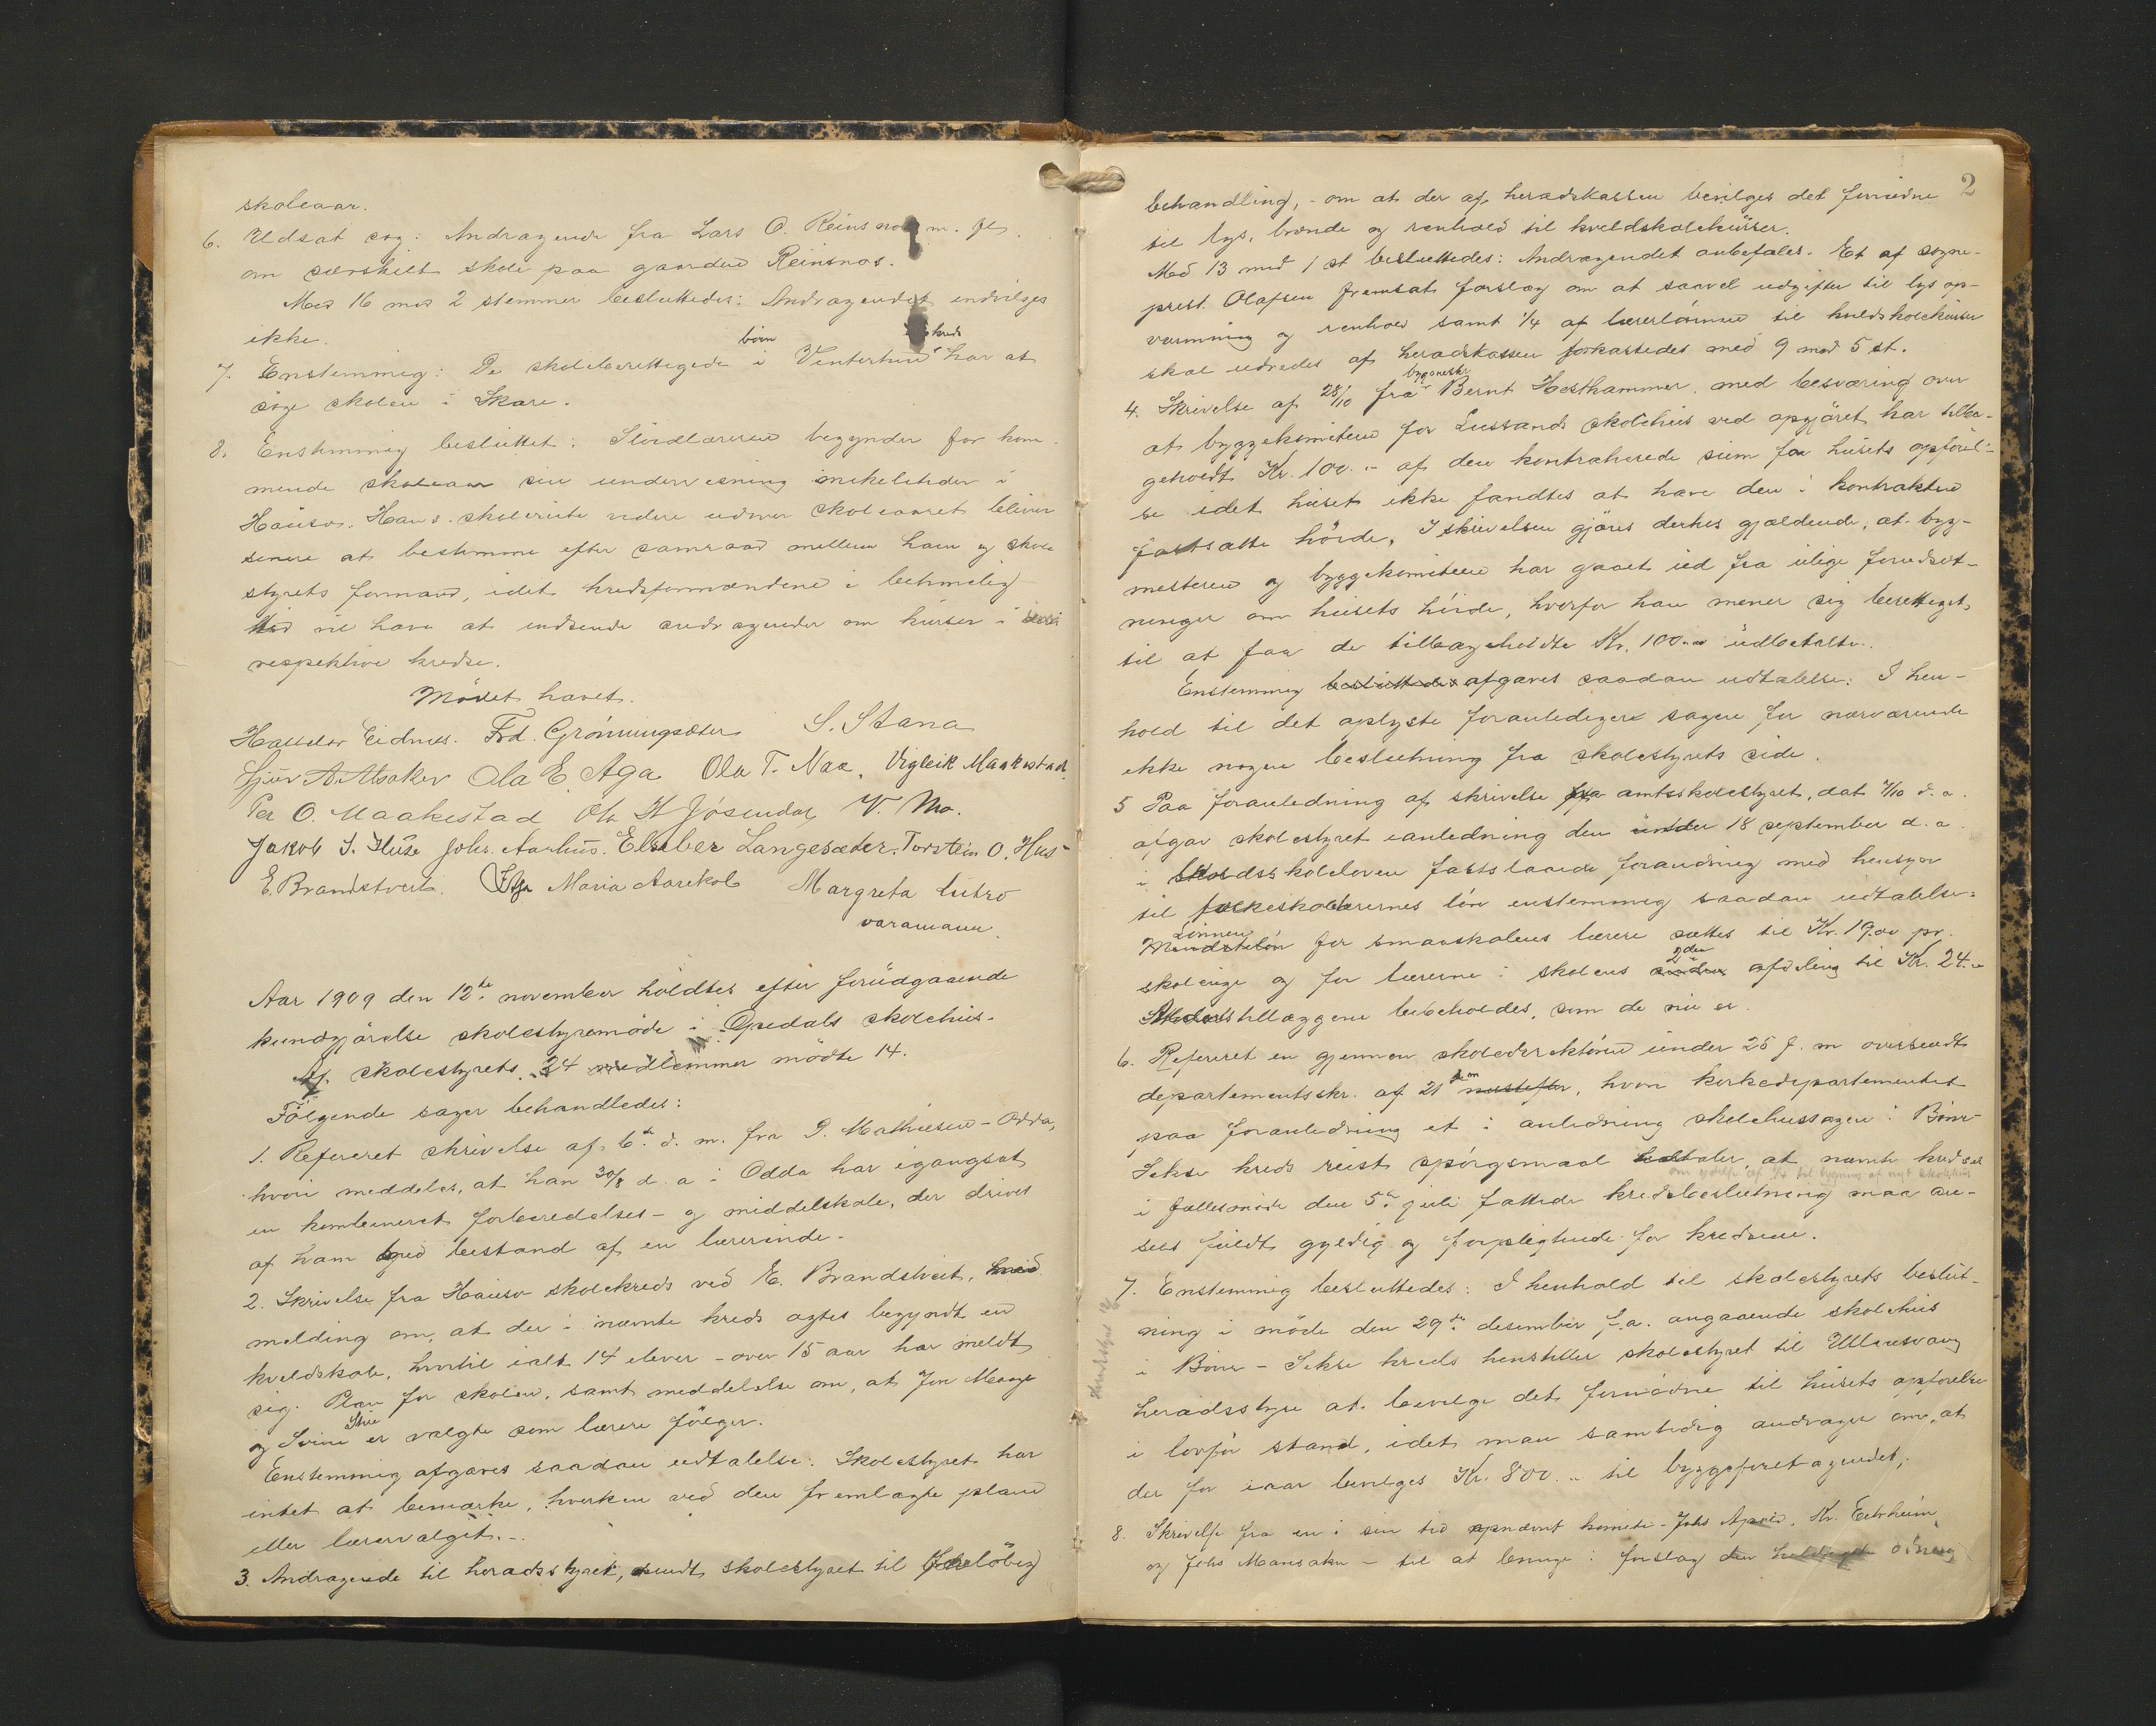 skoleaar.
6. Udsat sag: Andragende fra Lars O. Reinsnos m. fl.
om særskilt skole paa gaarden Reinsnos.
Med 16 mod 2 stemmer besluttedes: Andragendet indvilges
ikke.
børn kreds
7. Enstemmig: De skoleberettigede i Vintertun har at
søge skolen i Skare.
8. Enstemmig besluttet: Sløidlæreren begynder for kom-
mende skoleaar sin undervisning mikelstider i
Hauso. Hans skolerute videre udover skoleaaret bliver
senere at bestemme efter samraad mellem ham og skole
styrets formand, idet kredsformændene i betimelig
tid vil have at indsende andragender om kurser i
respektive kredse.
Mødet hævet.
Halldor Eidnes. Frd. Grønningsæter S. Stana
Sjur A. Alsaker Ola E. Aga Ola T. Naa. Vigleik Maakestad.
Per O. Maakestad Ola H Jösendal V. Mo.
Jakob J. Huse Johs. Aarhus. Elseber Langesæter. Torstein O. Hus
E. Brandstveit. Maria Aarekol Margreta Lutro
varamann.
Aar 1909 den 12te november holdtes efter forudgaaende
kundgjørelse skolestyremøde i Opedals skolehus.
Af skolestyrets 24 medlemmer mødte 14.
Følgende sager behandledes:
1. Refereret skrivelse af 6te d. m. fra P. Mathiesen - Odda,
hvori meddeles, at han 30/8 d. a i Odda har igangsat
en kombineret forberedelses- og middelskole, der drives
af ham med bistand af en lærerinde.
2. Skrivelse fra Hauso skolekreds ved E. Brandstveit, med
melding om, at der i nævnte kreds agtes begyndt en
kveldskole, hvortil ialt 14 elever - over 15 aar har meldt
sig. Plan for skolen, samt meddelelse om, at Jon Mauge
og Svein er valgte som lærere følger.
Enstemmig afgaves saadan udtalelse: Skolestyret har
intet at bemærke, hverken ved den fremlagte plan
eller lærervalget.-
3. Andragende til heradsstyret, sendt skolestyret til foreløbig
2
behandling, - om at der af heradskassen bevilges det fornødne
til lys, brænde og renhold til kveldskolekurser.
Med 13 mod 1 st besluttedes: Andragendet anbefales. Et af sogne-
prest Olafsen fremsat forslag om at saavel udgifter til lys op-
varmning og renhold samt 1/4 af lærerlønnen til kveldskolekurser
skal udredes af heradskassen forkastedes med 9 mod 5 st.
bygmester
4. Skrivelse af 28/10 fra Bernt Hesthammer med besværing over
at byggekomiteen for Lussands skolehus ved opgjøret har tilba-
geholdt Kr. 100.- af den kontraherede sum for husets opførel-
se idet huset ikke fandtes at have den i kontrakten
fastsatte høide. I skrivelsen gjøres derhos gjældende, at byg-
mesteren og byggekomiteen har gaaet ud fra ulige forudsæt-
ninger om husets høide, hvorfor han mener sig berettiget
til at faa de tilbageholdte Kr. 100.- udbetalte.
Enstemmig besluttedes afgaves saadan udtalelse: I hen-
hold til det oplyste foranlediger sagen for nærværende
ikke nogen beslutning fra skolestyrets side.
5 Paa foranledning af skrivelse fra amtsskolestyret, dat 7/10 d. a.
afgav skolestyret i anledning den under 18 september d. a.
i landsskoleloven fastslaaede forandring med hensyn
til folkeskolelærernes løn enstemmig saadan udtalelse:
Lønnen
Mindsteløn for smaaskolens lærere sættes til Kr. 19.00 pr.
2den
skoleuge og for lærerne i skolens anden afdeling til Kr. 24.-
Alderstillæggene bibeholdes, som de nu er.
6. Refereret en gjennem skoledirektøren under 25 f. m oversendt
departementsskr. af 21 s m næstefter, hvori kirkedepartementet
paa foranledning et i anledning skolehussagen i Børve-
Sekse kreds reist spørgsmaal udtaler, at nævnte kreds
om ydelse af 1/4 til bygning af nyt skolehus
i fællesmøde den 5te juli fattede kredsbeslutning maa an-
sees fuldt gyldig og forpligtende for kredsene.
7. Enstemmig besluttedes: I henhold til skolestyrets beslut-
ning i møde den 29de desember f. a. angaaende skolehus
i Børve - Sekse kreds henstiller skolestyret til Ullensvang
heradsstyre at bevilge det fornødne til husets opførelse
i lovfør stand, idet man samtidig andrager om, at
der for iaar bevilges Kr. 800.- til byggeforetagendet.
8. Skrivelse fra en i sin tid opnævnt komite - Johs Apold, Kr. Eitrheim
og Johs Mannsaker - til at bringe i forslag den